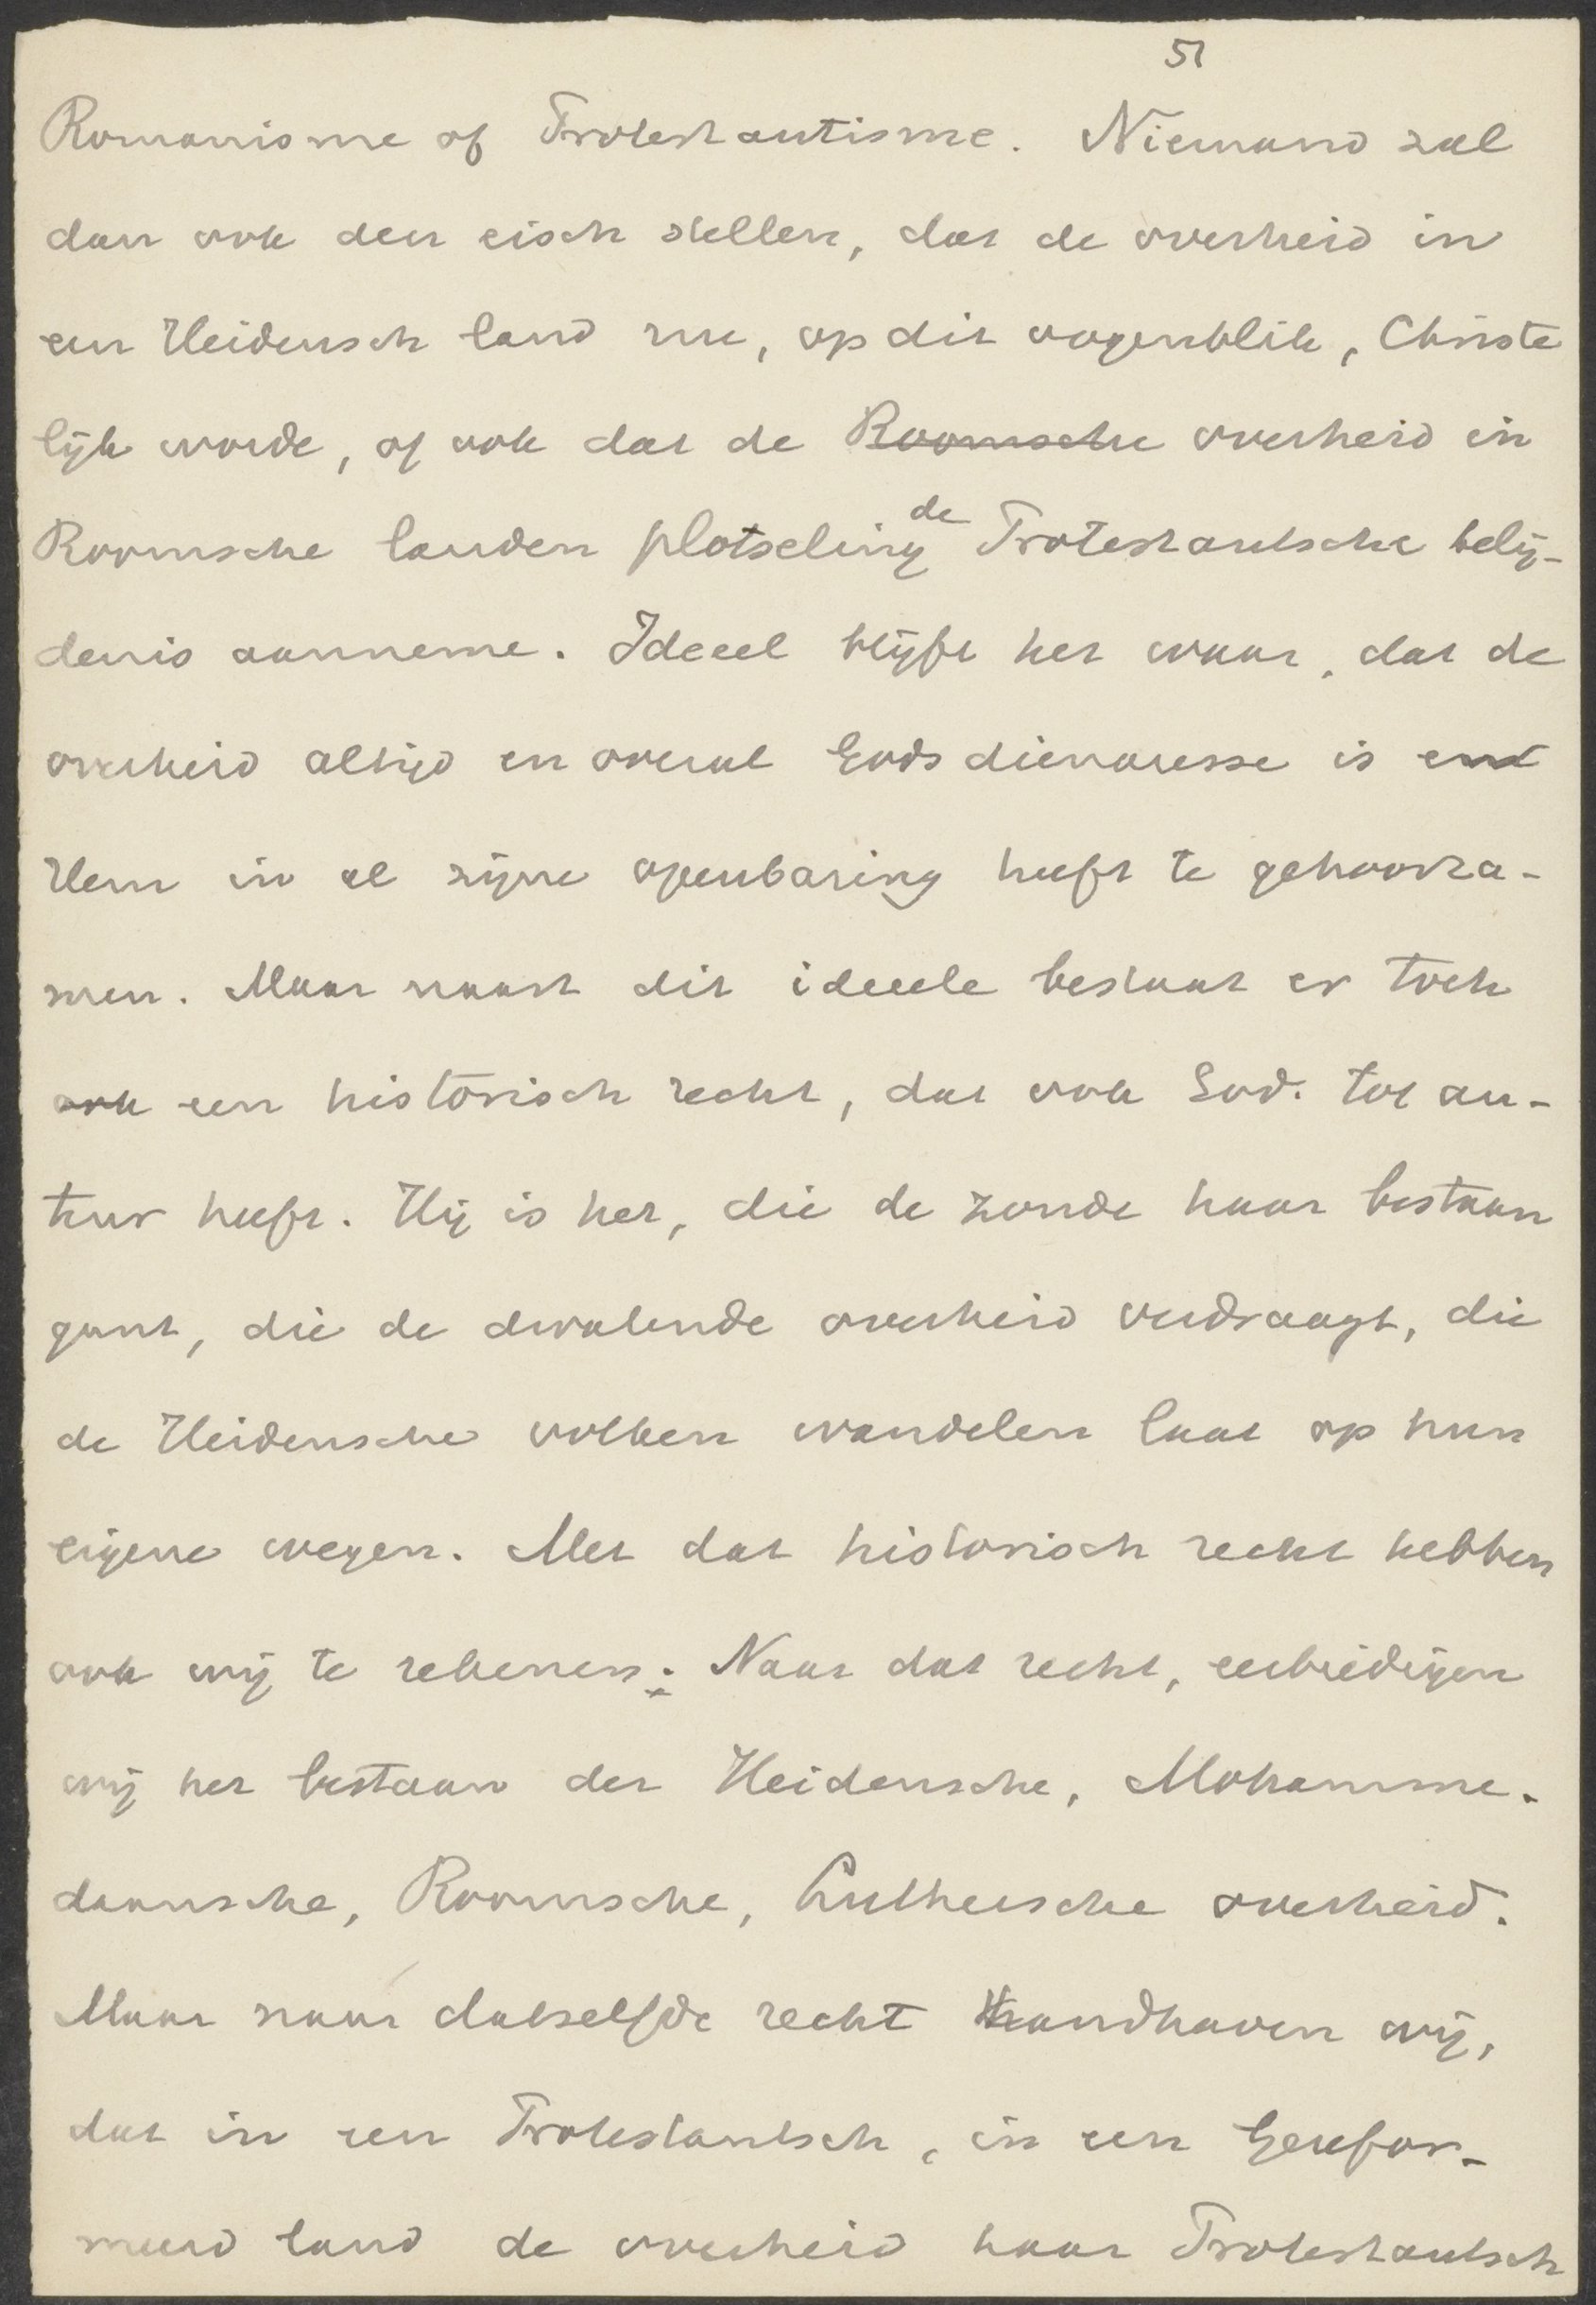 51
Romanisme of Protestantisme. Niemand zal
dan ook den eisch stellen, dat de overheid in
een Heidensch land nu, op dit oogenblik, Christe
lijk worde, of ook dat de Roomsche overheid in
Roomsche landen plotseling de Protestantsche belij-
denis aanneme. Ideeel blijft het waar, dat de
overheid altijd en overal Gods dienaresse is en
Hem in al zijne openbaring heeft te gehoorza-
men. Maar naast dit ideeele bestaat er toch
ook een historisch recht, dat ook God. tot au-
teur heeft. Hij is het, die de zonde haar bestaan
gunt, die de dwalende overheid verdraagt, die
de Heidensche volken wandelen laat op hun
eigene wegen. Met dat historisch recht hebben
ook wij te rekenen. Naar dat recht, eerbiedigen
wij het bestaan der Heidensche, Mohamme-
daansche, Roomsche, Luthersche overheid.
Maar naar datzelfde recht handhaven wij,
dat in een Protestantsch, in een Gerefor-
meerd land de overheid haar Protestantsch